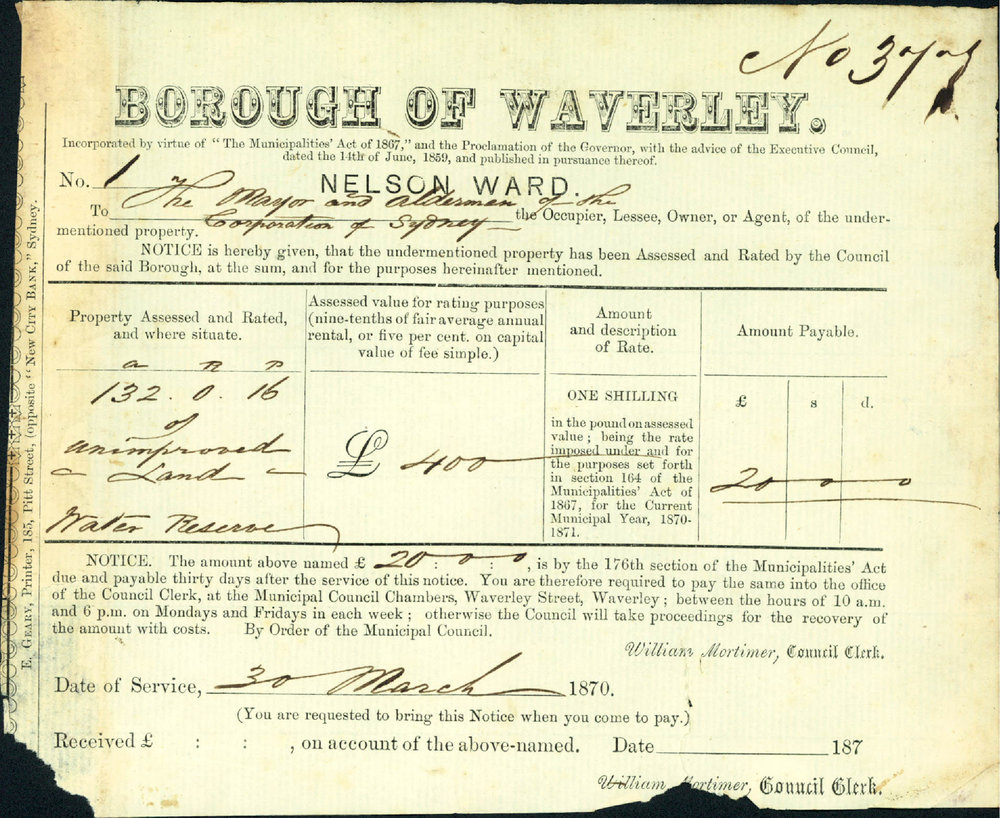 No 377
BOROUGH OF WAVERLEY.
Incorporated by virtue of "The Municipalities' Act of 1867," and the Proclamation of the Governor, with the advice of the Executive Council,
dated the 14th of June, 1859, and published in pursuance thereof.
No. 1
NELSON WARD.
To The Mayor and Aldermen of the
Corporation of Sydney the Occupier, Lessee, Owner, or Agent, of the under-
mentioned property.
NOTICE is hereby given, that the undermentioned property has been Assessed and Rated by the Council
of the said Borough, at the sum, and for the purposes hereinafter mentioned.
Property Assessed and Rated,
and where situate.
Assessed value for rating purposes
(nine-tenths of fair average annual
rental, or five per cent. on capital
value of fee simple.)
Amount
and description
of Rate.
Amount Payable.
a R P
132. 0. 16
of
unimproved
Land
Water Reserve
£ 400
ONE SHILLING
in the pound on assessed
value; being the rate
imposed under and for
the purposes set forth
in section 164 of the
Municipalities' Act of
1867, for the Current
Municipal Year, 1870-
1871.
£ s d.
20 0 0
NOTICE. The amount above named £ 20 : 0 : 0, is by the 176th section of the Municipalities' Act
due and payable thirty days after the service of this notice. You are therefore required to pay the same into the office
of the Council Clerk, at the Municipal Council Chambers, Waverley Street, Waverley; between the hours of 10 a.m.
and 6 p.m. on Mondays and Fridays in each week; otherwise the Council will take proceedings for the recovery of
the amount with costs. By Order of the Municipal Council.
William Mortimer, Council Clerk.
Date of Service, 30 March 1870.
(You are requested to bring this Notice when you come to pay.)
Received £ : : , on account of the above-named. Date 187
William Mortimer, Council Clerk.
E. GEARY, Printer, 185, Pitt Street, (opposite "NEW CITY BANK," Sydney.